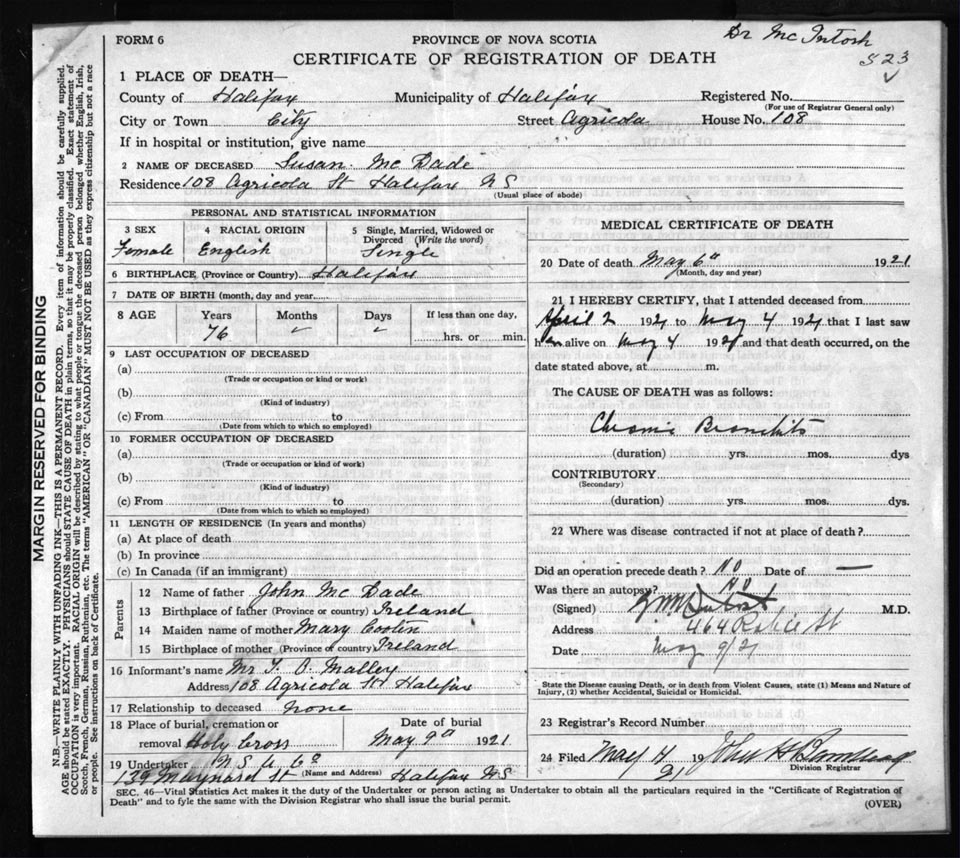 Dr McIntosh
523
FORM 6
PROVINCE OF NOVA SCOTIA
CERTIFICATE OF REGISTRATION OF DEATH
1 PLACE OF DEATH—
County of Halifax Municipality of Halifax Registered No.
(For use of Registrar General only)
City or Town City Street Agricola House No. 108
If in hospital or institution, give name
2 NAME OF DECEASED Susan Mc Dade
Residence 108 Agricola St Halifax NS
(Usual place of abode)
PERSONAL AND STATISTICAL INFORMATION
3 SEX 4 RACIAL ORIGIN 5 Single, Married, Widowed or Divorced (Write the word)
Female English Single
6 BIRTHPLACE (Province or Country) Halifax
7 DATE OF BIRTH (month, day and year)
8 AGE Years Months Days If less than one day,
76 hrs. or min.
9 LAST OCCUPATION OF DECEASED
(a)
(Trade or occupation or kind or work)
(b)
(Kind of industry)
(c) From to
(Date from which to which so employed)
10 FORMER OCCUPATION OF DECEASED
(a)
(Trade or occupation or kind of work)
(b)
(Kind of industry)
(c) From to
(Date from which to which so employed)
11 LENGTH OF RESIDENCE (In years and months)
(a) At place of death
(b) In province
(c) In Canada (if an immigrant)
Parents
12 Name of father John Mc Dade
13 Birthplace of father (Province or country) Ireland
14 Maiden name of mother Mary
15 Birthplace of mother (Province or country) Ireland
16 Informant's name Mr T. O. Malley
Address 108 Agricola St Halifax
17 Relationship to deceased none
18 Place of burial, cremation or Date of burial
removal Holy Cross May 9th 1921
19 Undertaker N S U Co
139 Maynard St (Name and Address) Halifax NS
MEDICAL CERTIFICATE OF DEATH
20 Date of death May 6th 1921
(Month, day and year)
21 I HEREBY CERTIFY, that I attended deceased from
April 2 1921 to May 4 1921 that I last saw
her alive on May 4 1921 and that death occurred, on the
date stated above, at m.
The CAUSE OF DEATH was as follows:
Chronic Bronchitis
(duration) yrs. mos. dys
CONTRIBUTORY
(Secondary)
(duration) yrs. mos. dys.
22 Where was disease contracted if not at place of death?
Did an operation precede death? No Date of —
Was there an autopsy? No
(Signed) McIntosh M.D.
Address 464 Robie St
Date May 9/21
State the Disease causing Death, or in death from Violent Causes, state (1) Means and Nature of
Injury, (2) whether Accidental, Suicidal or Homicidal.
23 Registrar's Record Number
24 Filed May 19 John H
21 Division Registrar
SEC. 46—Vital Statistics Act makes it the duty of the Undertaker or person acting as Undertaker to obtain all the particulars required in the "Certificate of Registration of
Death" and to fyle the same with the Division Registrar who shall issue the burial permit.
(OVER)
MARGIN RESERVED FOR BINDING
N.B.—WRITE PLAINLY WITH UNFADING INK—THIS IS A PERMANENT RECORD. Every item of information should be carefully supplied.
AGE should be stated EXACTLY. PHYSICIANS should STATE CAUSE OF DEATH in plain terms, so that it may be properly classified. Exact statement of
OCCUPATION is very important. RACIAL ORIGIN will be described by stating to what people or tongue the deceased person belonged whether English, Irish,
Scotch, French, German, Russian, Ruthenian, etc. The terms "AMERICAN" OR "CANADIAN" MUST NOT BE USED as they express citizenship but not a race
or people. See instructions on back of Certificate.